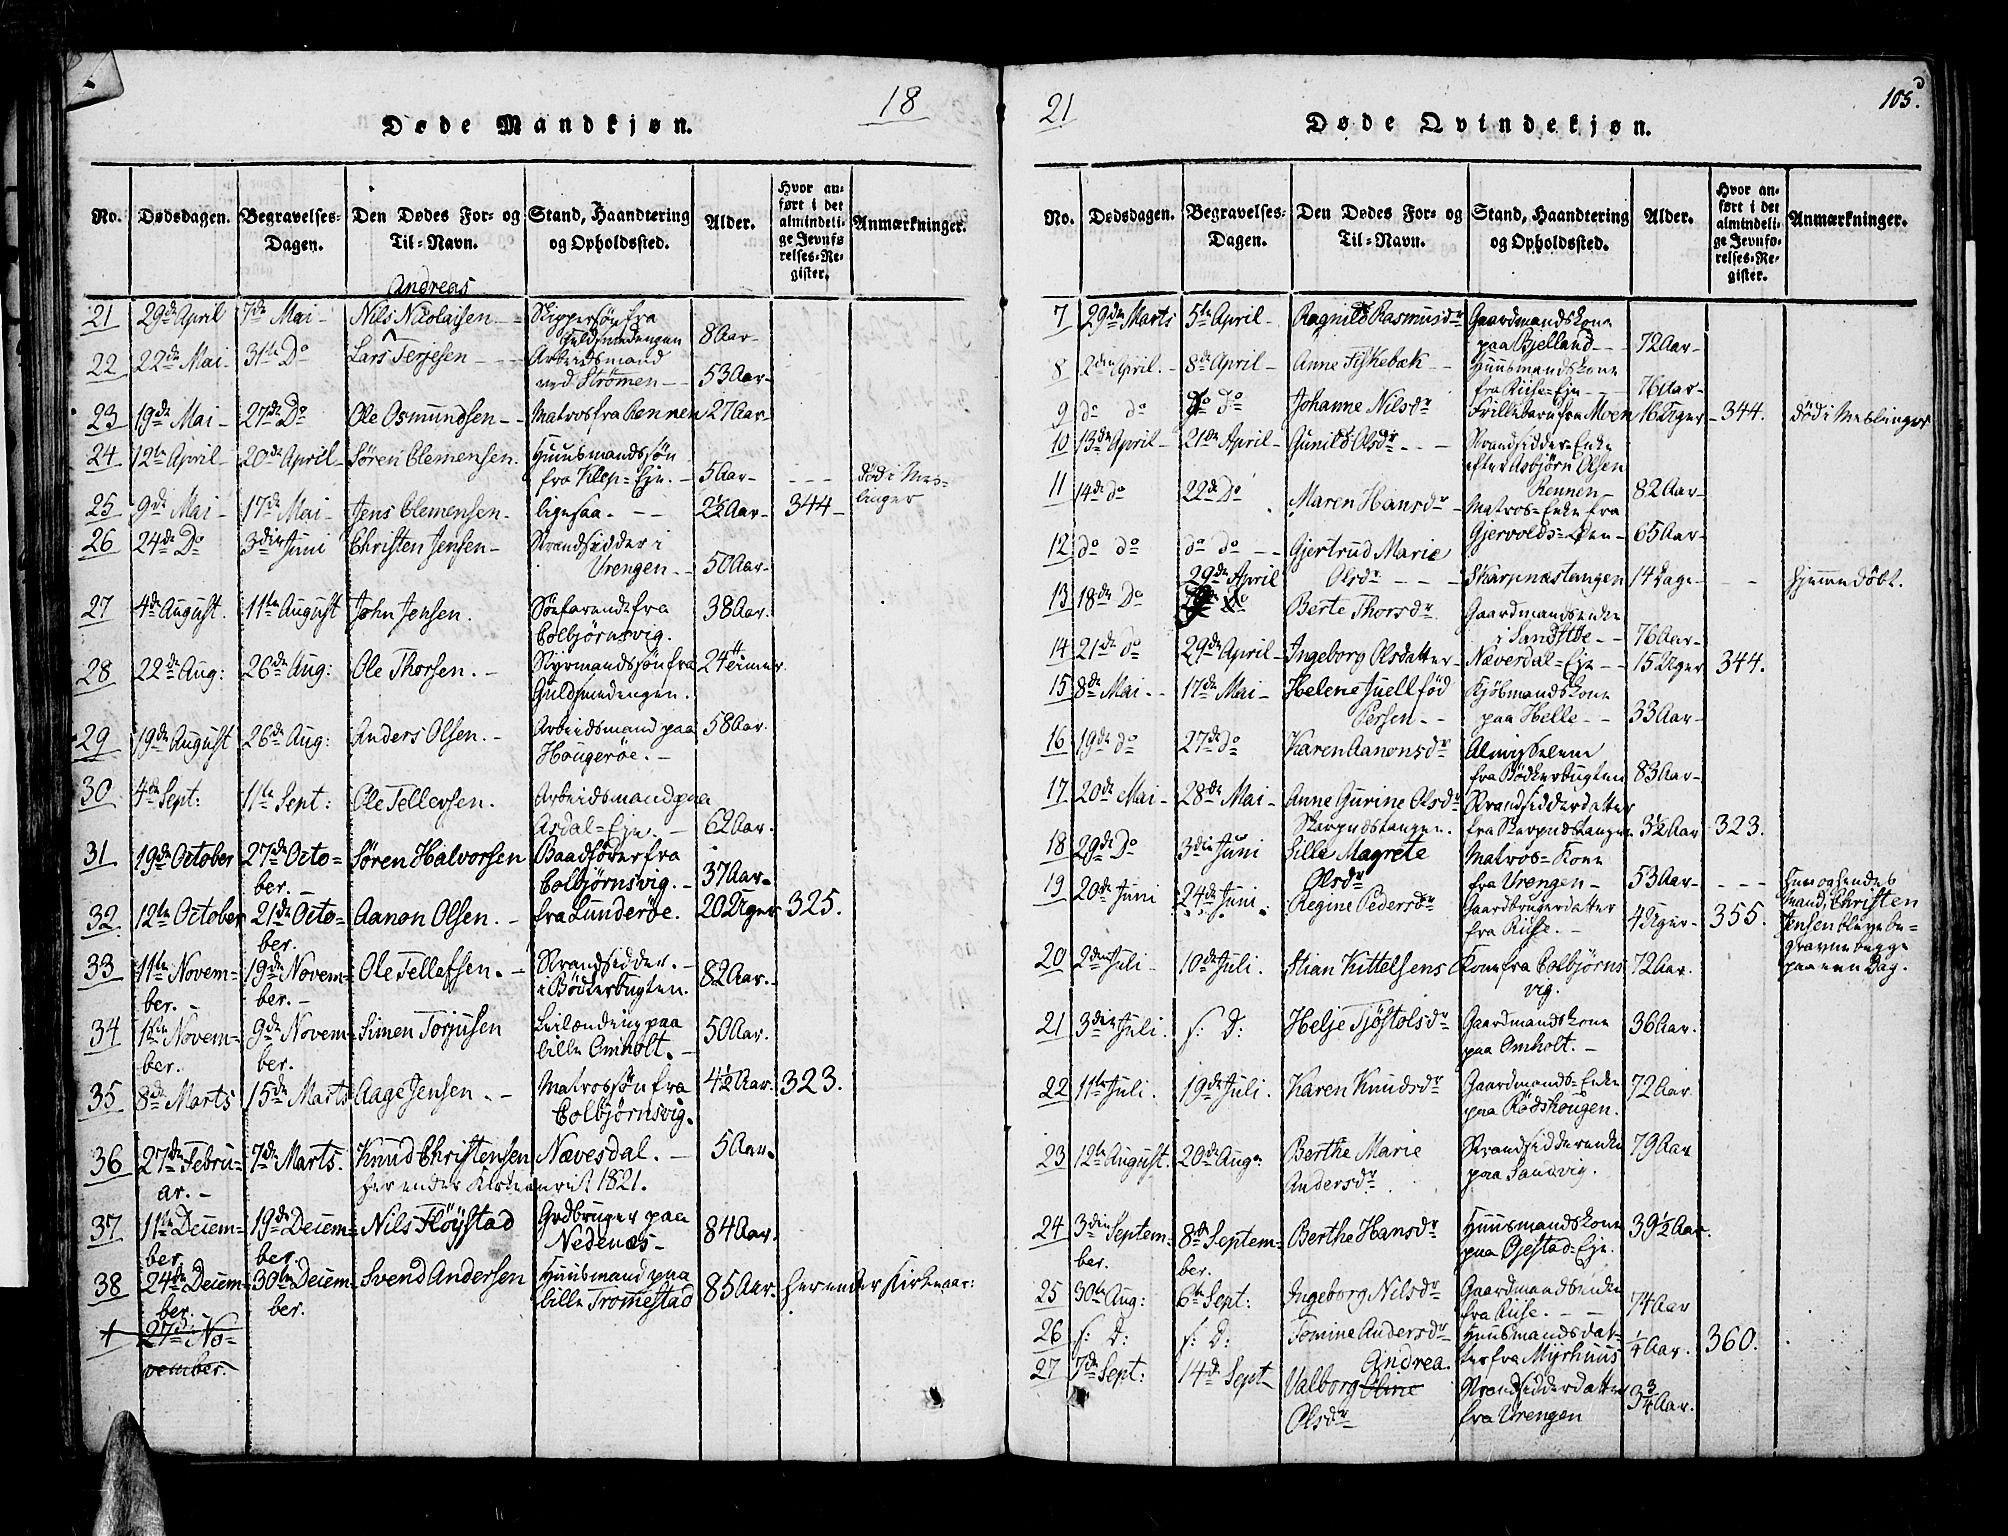 18
Døde Mandkjøn.
No. Dødsdagen. Begravelses-Dagen. Den Dødes For- og Til-Navn. Stand, Haandtering og Opholdssted. Alder. Hvor anført i det almindelige Jevnførelses-Register. Anmærkninger.
Andreas
21 29de April 7de Mai - Nils Nicolaisen - Skippersøn fra
Guldsmedengen 8 Aar -
22 22de Mai - 31te Do Lars Terjesen - - Arbeidsmand
ved Strömen - 53 Aar -
23 19de Mai 27de Do Ole Osmundsen - Matros fra Rennen 27 Aar
24 12te April 20de April Sören Clemensen. Huusmandssøn
fra Klep-Eje. - 5 Aar - - - - död i Mes-
25 9de Mai - 17de Mai - Jens Clemensen - ligesaa. - - 2½ Aar - 344 - linger
26 24de Do 3die Juni Christen Jensen - Strandsidder i
Vrengen - 50 Aar -
27 4de August. 11te August John Jensen. Söefarende fra 38 Aar.
Colbjørnsvig.
28 22de Aug: 26de Aug: Ole Thorsen. - Styrmandssøn fra 24 Timer.
Guldsmedengen.
29 19de August 26de Aug: Anders Olsen. - Arbeidsmand paa 58 Aar.
Hougerøe. -
30 4de Sept: 11te Sept: Ole Tellevsen. Arbeidsmand paa
Asdal-Eje. - 62 Aar.
31 19de October 27de Octo- Søren Halvorsen Baadfører fra
ber. Colbjørnsvig. - 37 Aar -
32 12te October 21de Octo- Aanon Olsen. - fra Lunderøe. 20 Uger 325.
ber.
33 11te Novem- 19de Novem- Ole Tellefsen. - Strandsidder. - 82 Aar. -
ber. - ber. - i Bödkerbugten.
34 1ste Novem- 9de Novem- Simen Torjusen Leilænding paa 50 Aar.
ber. ber. lille Omholt. -
35 8de Marts 15de Marts Aage Jensen. - Matrossøn fra 4½ Aar. 323.
Colbjørnsvig.
36 27de Febru- 7de Marts. Knud Christensen Nævesdal. - 5 Aar.
ar. - her ender Kirkeaaret 1821.
37 11te Decem- 19de Decem- Nils Flöystad Grdbruger paa 84 Aar.
ber ber. Nedenæs -
38 24de Decem- 30te Decem- Svend Andersen Huusmand paa 85 Aar. her ender Kirkeaar:
ber. ber. lille Tromestad
+ 27de No-
vember.
21
105.
Døde Qvindekjøn.
No. Dødsdagen. Begravelses-Dagen. Den Dødes For- og Til-Navn. Stand, Haandtering og Opholdssted. Alder. Hvor anført i det almindelige Jevnførelses-Register. Anmærkninger.
7 29de Marts 5te April - Ragnild Rasmusdr Gaardmandskone
paa Bjelland - 72 Aar -
8 2den April. - 8de April - Anne Fiskebæk - - Huusmandskone
fra Riise-Eje - 76 Aar -
9 do do do do Johanne Nilsdr Spillebarn fra Moen 16 Uger - 344. död i Meslinger
10 13de April - 21de April - Gunild Olsdr - - - Strandsidder-Enke
efter Asbjörn Olsen
11 14de do 22de do Rennen - 82 Aar -
Maren Hansdr - Matros-Enke fra
Gjervolds-Öen - 65 Aar -
12 do do do do - - Gjertrud Marie
29de April Olsdr - - - Skarpnæstangen 14 Dage - - - hjemmedöbt.
13 18de Do Berte Thorsdr Gaardmandsenke
i Sandstöe - - 76 Aar -
14 21de do 29de April - Ingeborg Olsdatter - Næverdal-Eje - - 15 Uger 344.
15 8de Mai - - 17de Mai - Helene Juell föd Kjøbmandskone
Persen - - paa Helle - - 33 Aar -
16 19de do 27de do Karen Aanonsdr Almisselem
fra Bödkerbugten 83 Aar -
17 20de Mai - 28de Mai - Anne Gurine Olsdr Strandsidderdatter
Skarpnæstangen. fra Skarpnæstangen 3½ Aar 323.
18 29de Do 3die Juni Sille Magrete Matros-Kone
Olsdr fra Vrengen - 53 Aar - - - - Hun og hendes
19 20de Juni 24de Juni Regine Pedersdr Gaardbrugerdatter 4 Uger - 355. Mand, Christen
fra Riise. - Jensen bleve be-
gravne begge
20 2den Juli - 10de Juli. Stian Kittelsens Kone fra Colbjørns 72 Aar. paa een Dag.
vig.
21 3die Juli. s: D: Helje Tjöstolsdr Gaardmandskone 36 Aar.
paa Omholt. -
22 11te Juli. 19de Juli. Karen Knudsdr Gaardmands-Enke 72 Aar
paa Rödshougen.
23 12te August. 20de Aug. Berthe Marie Strandsidderenke 79 Aar
Andersdr paa Sandvig.
24 3die Septem- 8de Septem- Berthe Hansdr Huusmandskone 39½ Aar.
ber. ber. paa Öjestad-Eje.
25 30te Aug: 6te Sept: Ingeborg Nilsdr Gaardmandsenke
fra Riise. - - 74 Aar
26 s: D: s: D: Tomine Andersdr Huusmandsdat-
ter fra Myrhuus ¼ Aar. 360.
27 7de Sept: 14de Sept - Andrea
Valborg Oline Strandsidderdatter
Olsdr fra Vrengen 3¾ Aar.